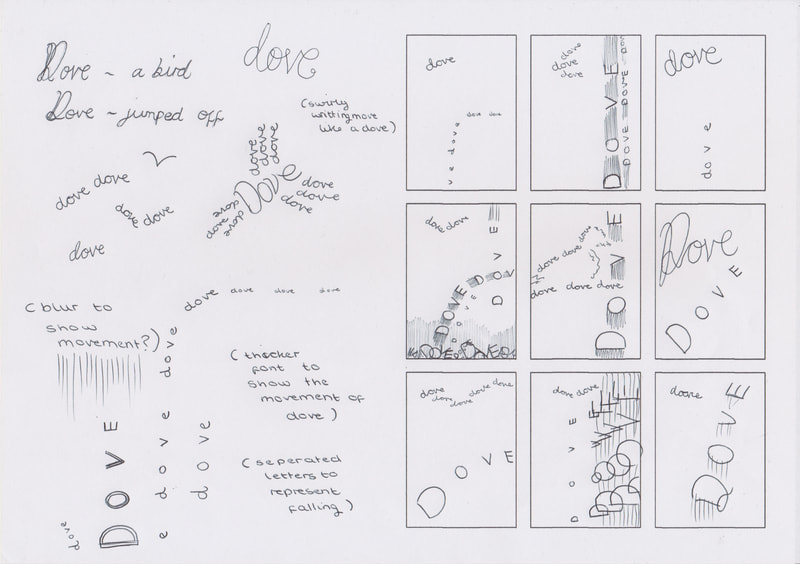 Dove ~ a bird
Dove ~ jumped off
dove
(swirly
writting move
like a dove)
dove dove
dove dove
dove
dove
dove
dove
Dove
dove
dove
dove
dove
dove
dove
(blur to
show
movement?)
dove
dove
dove dove dove dove
(thicker
font to
show the
movement of
dove)
(seperated
letters to
represent
falling)
DOVE
dove
e dove
dove
dove
dove dove
v e d o v e
dove
dove
dove
DOVE
DOVE DOVE DOVE
dove
dove
dove dove
DOVE DOV
DOVE
dove
dove dove dove
dove dove dove
DOVE
Dove
DOVE
dove dove dove dove dove
DOVE
dove dove
DOVE
dove
DOVE